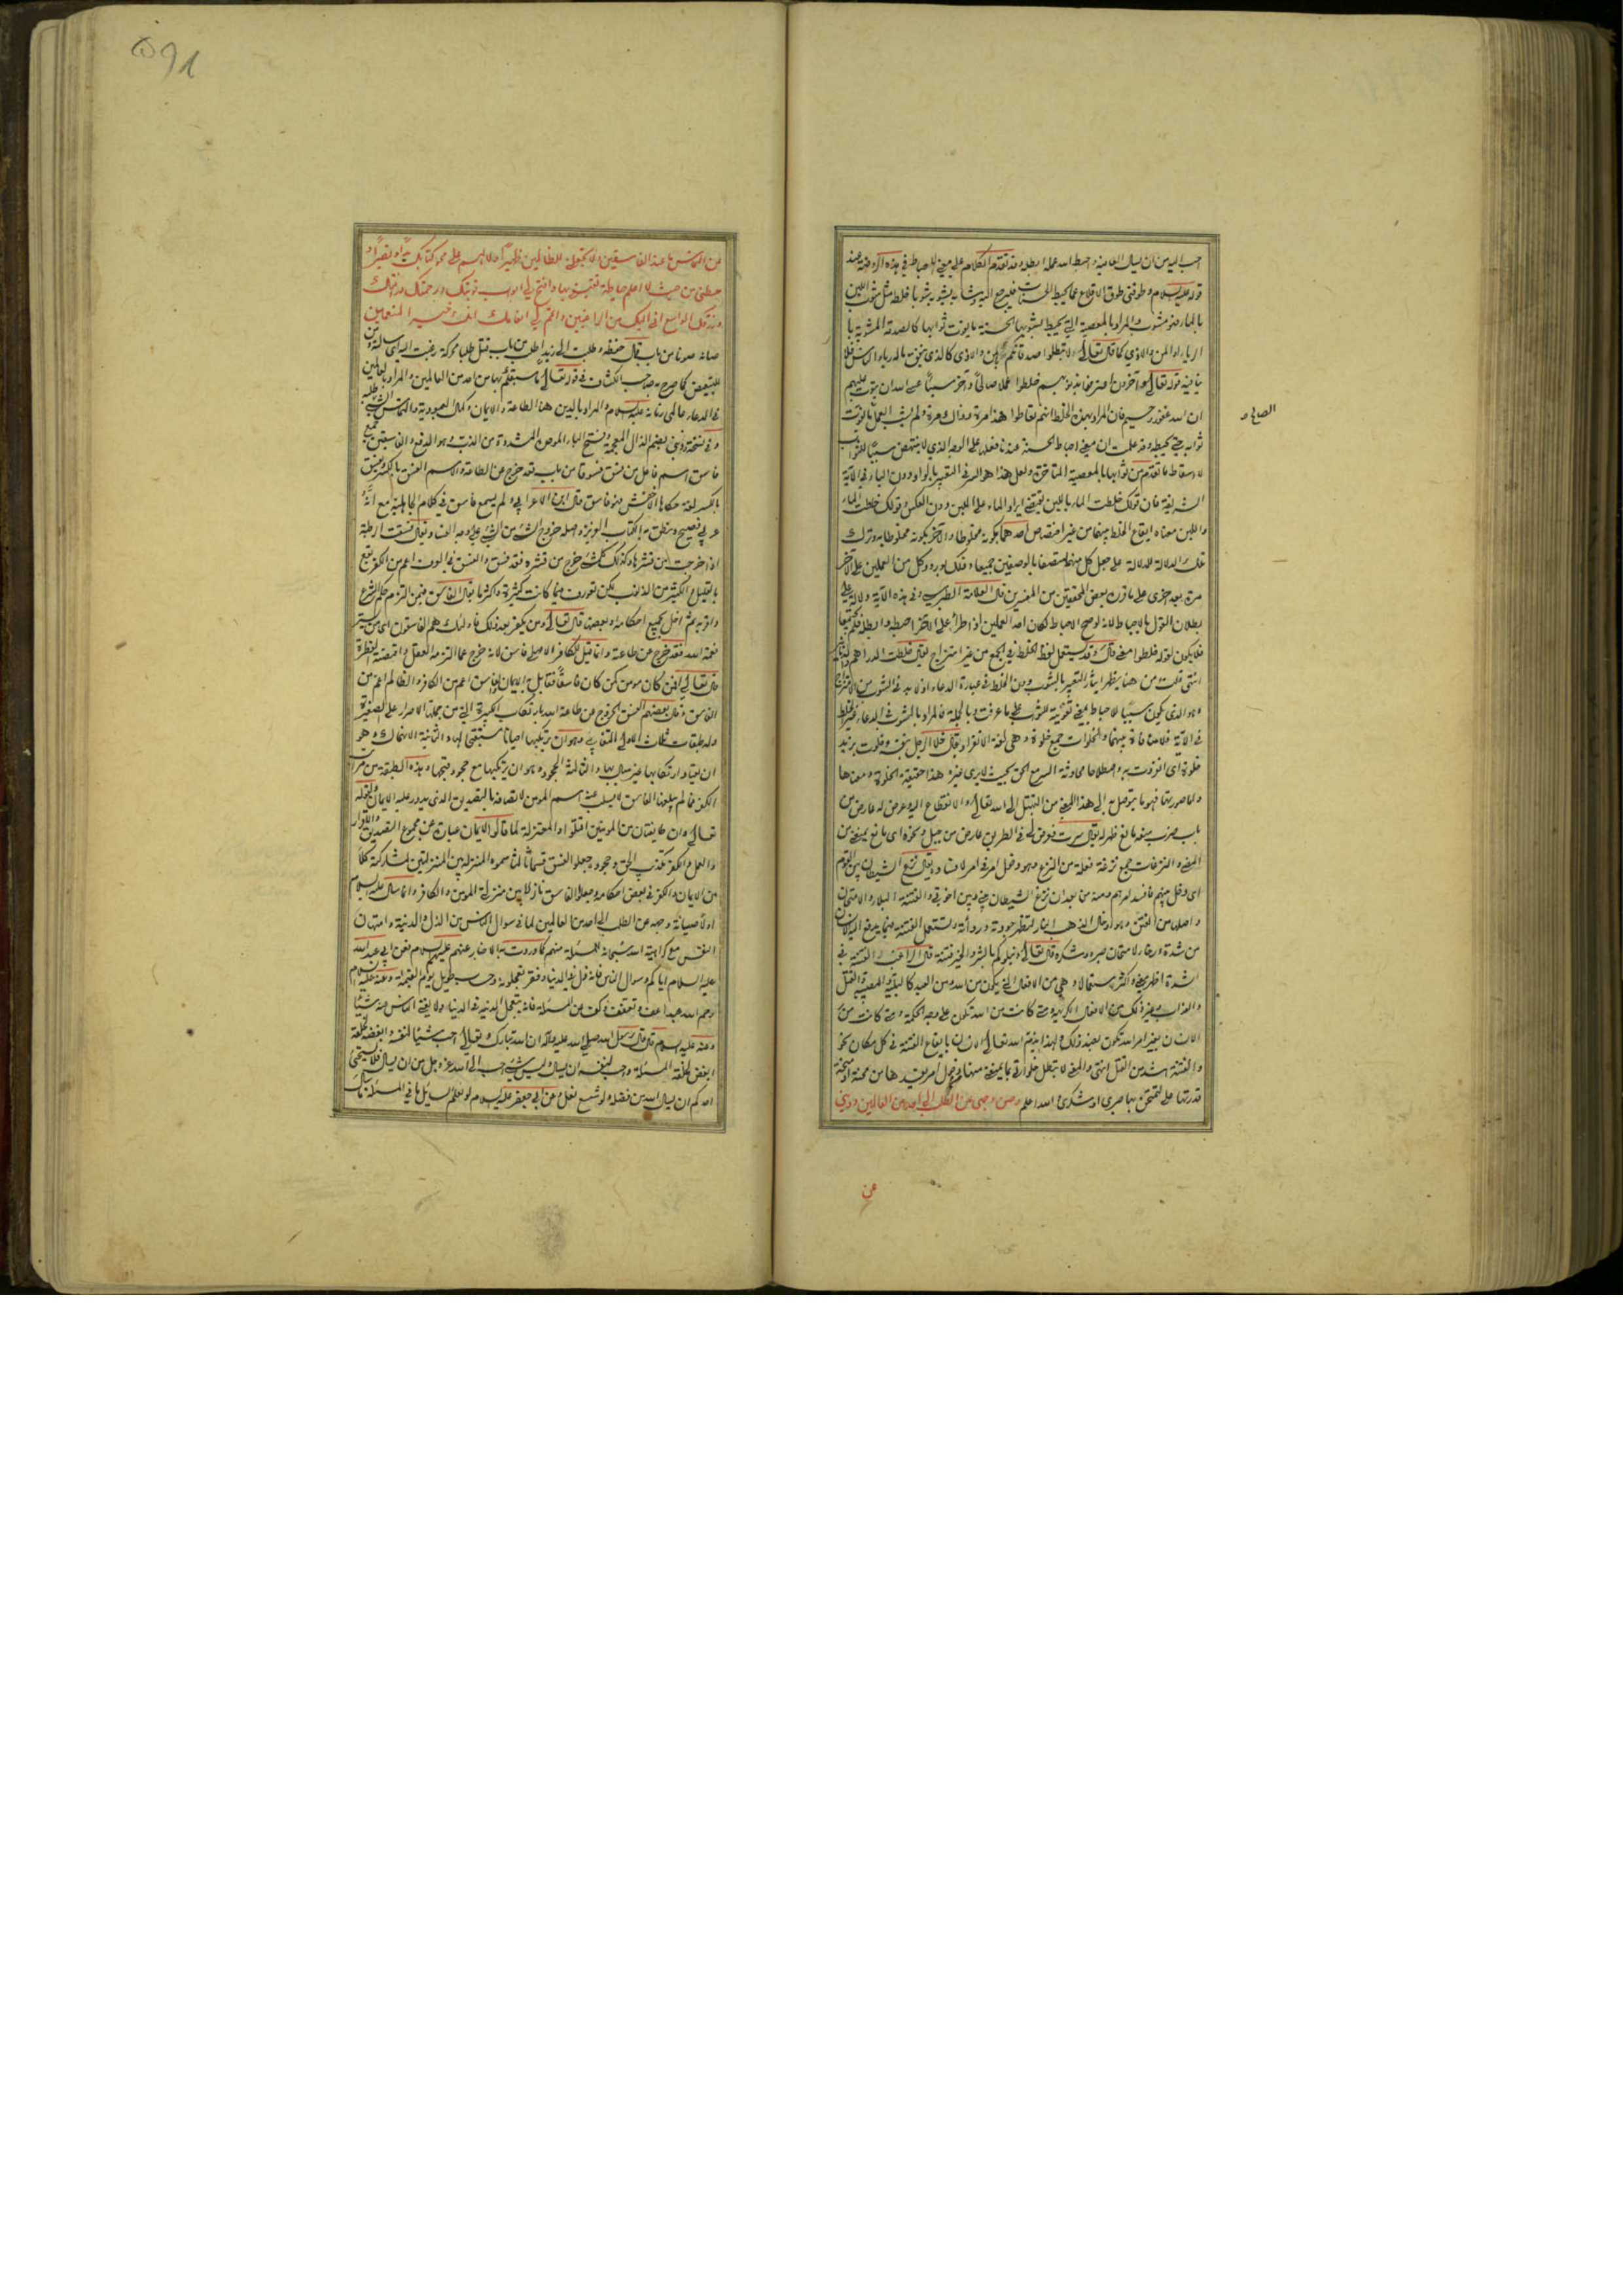 احب اليه من ان يسال العافية واحبط الله عمله ابطله وقد تقدم الكلام على معنى الاحباط في هذه الروضة عند
قوله عليه السلام وطوقني طوق الاقلاع عما يحبط الحسنات فليرجع اليه وشابه يشوبه شوبا خلطه مثل شوب اللبن
بالماء فهو مشوب والمراد بالمعصية التي تحبط بشوبها الحسنة ما يفوت ثوابها كالصدقة المشوبة با
الرياء او المن والاذى كما قال تعالى ولا تبطلوا صدقاتكم بالمن والاذى كالذي ينفق ماله رياء الناس فلا
ينافيه قوله تعالى وآخرون اعترفوا بذنوبهم خلطوا عملا صالحا وآخر سيئا عسى الله ان يتوب عليهم
ان الله غفور رحيم فان المراد بهذه الخلط انهم تعاطوا هذا مرة وذاك مرة ولم يشب العمل بما يفوت
الصالح و
ثوابه حتى يحبطه وقد علمت ان معنى احباط الحسنة عندنا فعلها على الوجه الذي لا ينتهض سببا للثواب
لا سقاط ما تقدم من ثوابها بالمعصية المتاخرة ولعل هذا هو السر في التعبير بالواو دون الباء في الآية
الشريفة فان قولك خلطت الماء باللبن يقتضي ايراد الماء على اللبن دون العكس وقولك خلطت الماء
واللبن معناه ايقاع الخلط بينهما من غير اختصاص احدهما بكونه مخلوطا والآخر بكونه مخلوطا به وترك
تلك الدلالة للدلالة على جعل كل منهما متصفا بالوصفين جميعا وذلك لورود كل من العملين على الآخر
مرة بعد اخرى على ما قرره بعض المحققين من المفسرين قال العلامة الطبرسي وفي هذه الآية دلالة على
بطلان القول بالاحباط لانه لو صح الاحباط لكان احد العملين اذا طرأ على الآخر احبطه وابطله فلم يجتمعا
فلا يكون لقوله خلطوا معنى قال وقد يستعمل لفظ الخلط في الجمع من غير امتزاج يقال خلطت الدراهم والدنانير
انتهى قلت من هنا يظهر ايثار التعبير بالشوب دون الخلط في عبارة الدعاء اذ لا بد في الشوب من الامتزاج
وهو الذي يكون سببا للاحباط بمعنى تفويته للثواب على ما عرفت وبالجملة فالمراد بالشوب في الدعاء غير الخلط
في الآية فلا منافاة بينهما والخلوات جمع خلوة وهي لغة الانفراد يقال خلا الرجل بنفسه وخلوت بزيد
خلوة اى انفردت به واصطلاحا محادثة السر مع الحق بحيث لا يرى غيره هذا حقيقة الخلوة ومعناها
واما صورتها فهو ما يتوصل به الى هذا المعنى من التبتل الى الله تعالى والانقطاع اليه وعرض له عارض من
باب ضرب منعه مانع ظهر له يقال سرت فعرض لي في الطريق عارض من جبل ونحوه اى مانع يمنع من
المضي والنزغات جمع نزغة فعلة من النزغ وهو دخول امر في امر لافساده يقال نزغ الشيطان بين القوم
اى دخل بينهم فافسد امرهم ومنه من بعد ان نزغ الشيطان بيني وبين اخوتي والفتنة البلاء والامتحان
واصلها من الفتن وهو ادخال الذهب النار لتظهر جودته ورداءته وتستعمل الفتنة فيما يدفع اليه الانسان
من شدة او رخاء لامتحان صبره وشكره قال تعالى ونبلوكم بالشر والخير فتنة قال الراغب والفتنة في
الشدة اظهر معنى واكثر استعمالا وهي من الافعال التي تكون من الله ومن العبد كالبلية والمعصية والقتل
والعذاب وغير ذلك من الافعال الكريهة ومتى كانت من الله تكون على وجه الحكمة ومتى كانت من
الانسان بغير امر الله تكون بضد ذلك ولهذا يذم الله تعالى الانسان بايقاع الفتنة في كل مكان نحو
والفتنة اشد من القتل انتهى والمعنى لا تجعل خلواتي بما يمنعني منها ودخول امر يفسدها من محنة او منحة
قدرتها علي لتمتحن بها صبري او شكري والله اعلم وصن وجهي عن الطلب الى احد من العالمين وذبني
عن
عن التماس ما عند الفاسقين ولا تجعلني للظالمين ظهيرا ولا لهم على محو كتابك يدا ونصيرا و
حطني من حيث لا اعلم حياطة تقيني بها وافتح لي ابواب توبتك ورحمتك ورافتك
ورزقك الواسع اني اليك من الراغبين واتمم لي انعامك انك خير المنعمين
صانه صونا من باب قال حفظه وطلبت الى زيد اطلب من باب قتل طلبا محركة رغبت اليه اى سالته ومن
للتبعيض كما صرح به صاحب الكشاف في قوله تعالى ما سبقكم بها من احد من العالمين والمراد بالعالمين
في الدعاء عالمي زمانه عليه السلام والمراد بالدين هنا الطاعة والايمان وكمال العبودية والتماس الشئ طلبه
وفي نسخة وذبني بضم الذال المعجمة وفتح الباء الموحدة المشددة من الذب وهو الدفع والفاسقين جمع
فاسق اسم فاعل من فسق فسوقا من باب قعد خرج عن الطاعة والاسم الفسق بالكسر ويفسق
بالكسر لغة حكاها الاخفش فهو فاسق قال ابن الاعرابي ولم يسمع فاسق في كلام الجاهلية مع انه
عربي فصيح ونطق به الكتاب العزيز واصله خروج الشئ من الشئ على وجه الفساد يقال فسقت الرطبة
اذا خرجت من قشرها وكذلك كل شئ خرج من قشره فقد فسق والفسق في العرف اعم من الكفر يقع
بالقليل والكثير من الذنوب لكن تعورف فيما كانت كثيرة واكثر ما يقال الفاسق فيمن التزم حكم الشرع
واقر به ثم اخل بجميع احكامه او ببعضه قال تعالى ومن يكفر بعد ذلك فاولئك هم الفاسقون اى من يستر
نعمة الله فقد خرج عن طاعته وانما قيل للكافر الاصلي فاسق لانه خرج عما الزمه العقل واقتضته الفطرة
قال تعالى افمن كان مومنا كمن كان فاسقا فقابل به الايمان فالفاسق اعم من الكافر والظالم اعم من
الفاسق وقال بعضهم الفسق الخروج عن طاعة الله بارتكاب الكبيرة التي من جملتها الاصرار على الصغيرة
وله طبقات ثلاث الاولى التغابي وهو ان يرتكبها احيانا مستقبحا لها والثانية الانهماك وهو
ان يعتاد ارتكابها غير مبال بها والثالثة الجحود وهو ان يرتكبها مع جحود قبحها وهذه الطبقة من مراتب
الكفر فما لم يبلغها الفاسق لا يسلب عنه اسم المومن لاتصافه بالتصديق الذي يدور عليه الايمان ولقوله
تعالى وان طايفتان من المومنين اقتتلوا والمعتزلة لما قالوا الايمان عبارة عن مجموع التصديق والاقرار
والعمل والكفر تكذيب الحق وجحوده جعلوا الفسق قسما ثالثا سموه المنزلة بين المنزلتين لمشاركته كلا
من الايمان والكفر في بعض احكامه وجعلوا الفاسق نازلا بين منزلة المومن والكافر وانما سال عليه السلام
اولا صيانة وجهه عن الطلب الى احد من العالمين لما في سوال الناس من الذل والدنية وامتهان
النفس مع كراهية الله سبحانه للمسئلة منهم كما وردت به الاخبار عنهم عليهم السلام فعن ابي عبد الله
عليه السلام اياكم وسوال الناس فانه ذل في الدنيا وفقر تعجلونه وحساب طويل يوم القيمة وعنه عليه السلام
رحم الله عبدا عف وتعفف وكف عن المسئلة فانه يتعجل الدنية في الدنيا ولا يغني الناس عنه شيئا
وعنه عليه السلام قال قال رسول الله صلى الله عليه وآله ان الله تبارك وتعالى احب شيئا لنفسه وابغضه لخلقه
ابغض لخلقه المسئلة واحب لنفسه ان يسال وليس شئ احب الى الله عز وجل من ان يسال فلا يستحيي
احدكم ان يسال الله من فضله ولو شسع نعل وعن ابي جعفر عليه السلام لو يعلم السايل ما في المسئلة ما سال